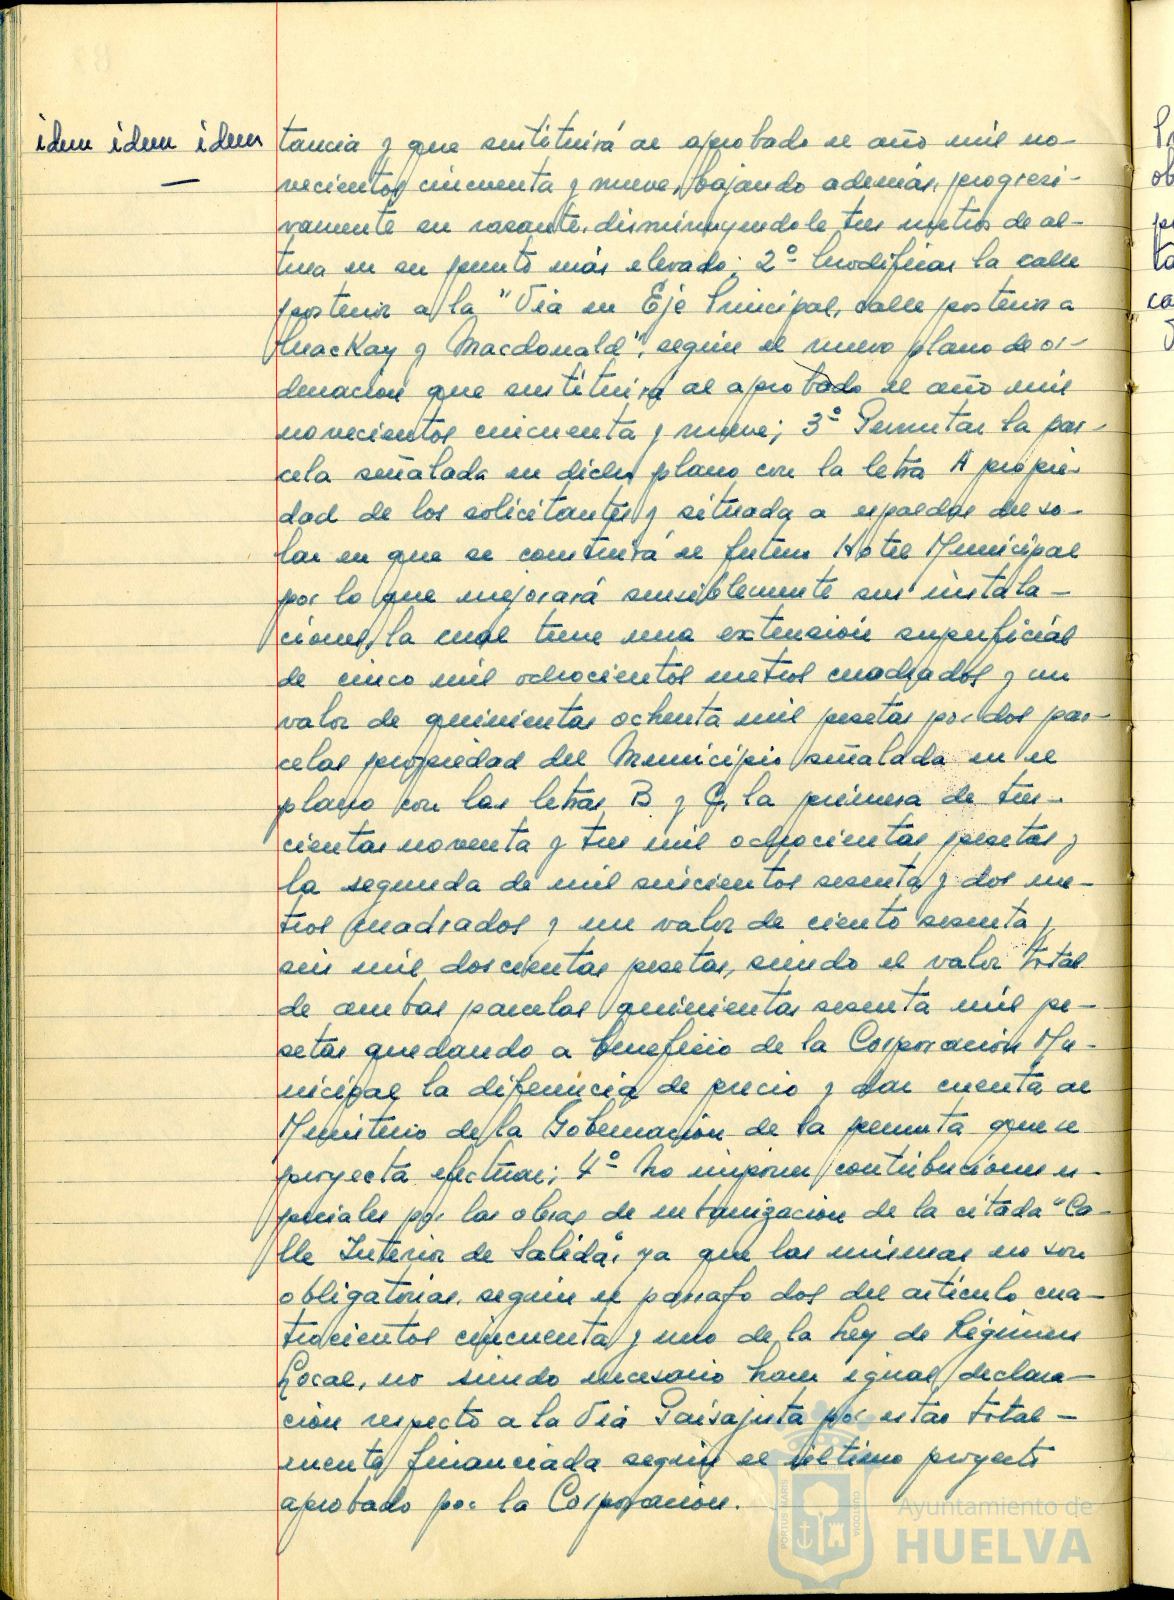 idem idem idem
tancia y que sustituirá al aprobado el año mil no-
vecientos cincuenta y nueve, bajando además, progresi-
vamente su rasante, disminuyendole tres metros de al-
tura en su punto más elevado; 2º Modificar la calle
posterior a la "Via en Eje Principal, calle posterior a
MacKay y Macdonald", según el nuevo plano de or-
denación que sustituirá al aprobado el año mil
novecientos cincuenta y nueve; 3º Permutar la par-
cela señalada en dicho plano con la letra A propie-
dad de los solicitantes y situada a espaldas del so-
lar en que se construirá el futuro Hotel Municipal
por lo que mejorará sensiblemente sus instala-
ciones, la cual tiene una extensión superficial
de cinco mil ochocientos metros cuadrados y un
valor de quinientas ochenta mil pesetas por dos par-
celas propiedad del Municipio señalada en el
plano con las letras B y C, la primera de tres-
cientas noventa y tres mil ochocientas pesetas y
la segunda de mil seiscientos sesenta y dos me-
tros cuadrados y un valor de ciento sesenta y
seis mil doscientas pesetas, siendo el valor total
de ambas parcelas quinientas sesenta mil pe-
setas quedando a beneficio de la Corporación Mu-
nicipal la diferencia de precio y dar cuenta al
Ministerio de la Gobernación de la permuta que se
proyecta efectuar; 4º No imponer contribuciones es-
peciales por las obras de urbanización de la citada "Ca-
lle Interior de Salida", ya que las mismas no son
obligatorias, según el párrafo dos del artículo cua-
trocientos cincuenta y uno de la Ley de Régimen
Local, no siendo necesario hacer igual declara-
ción respecto a la Via Paisajista por estar total-
mente financiada según el último proyecto
aprobado por la Corporación.
PORTUS MARIS
CUSTODIA
Ayuntamiento de
HUELVA